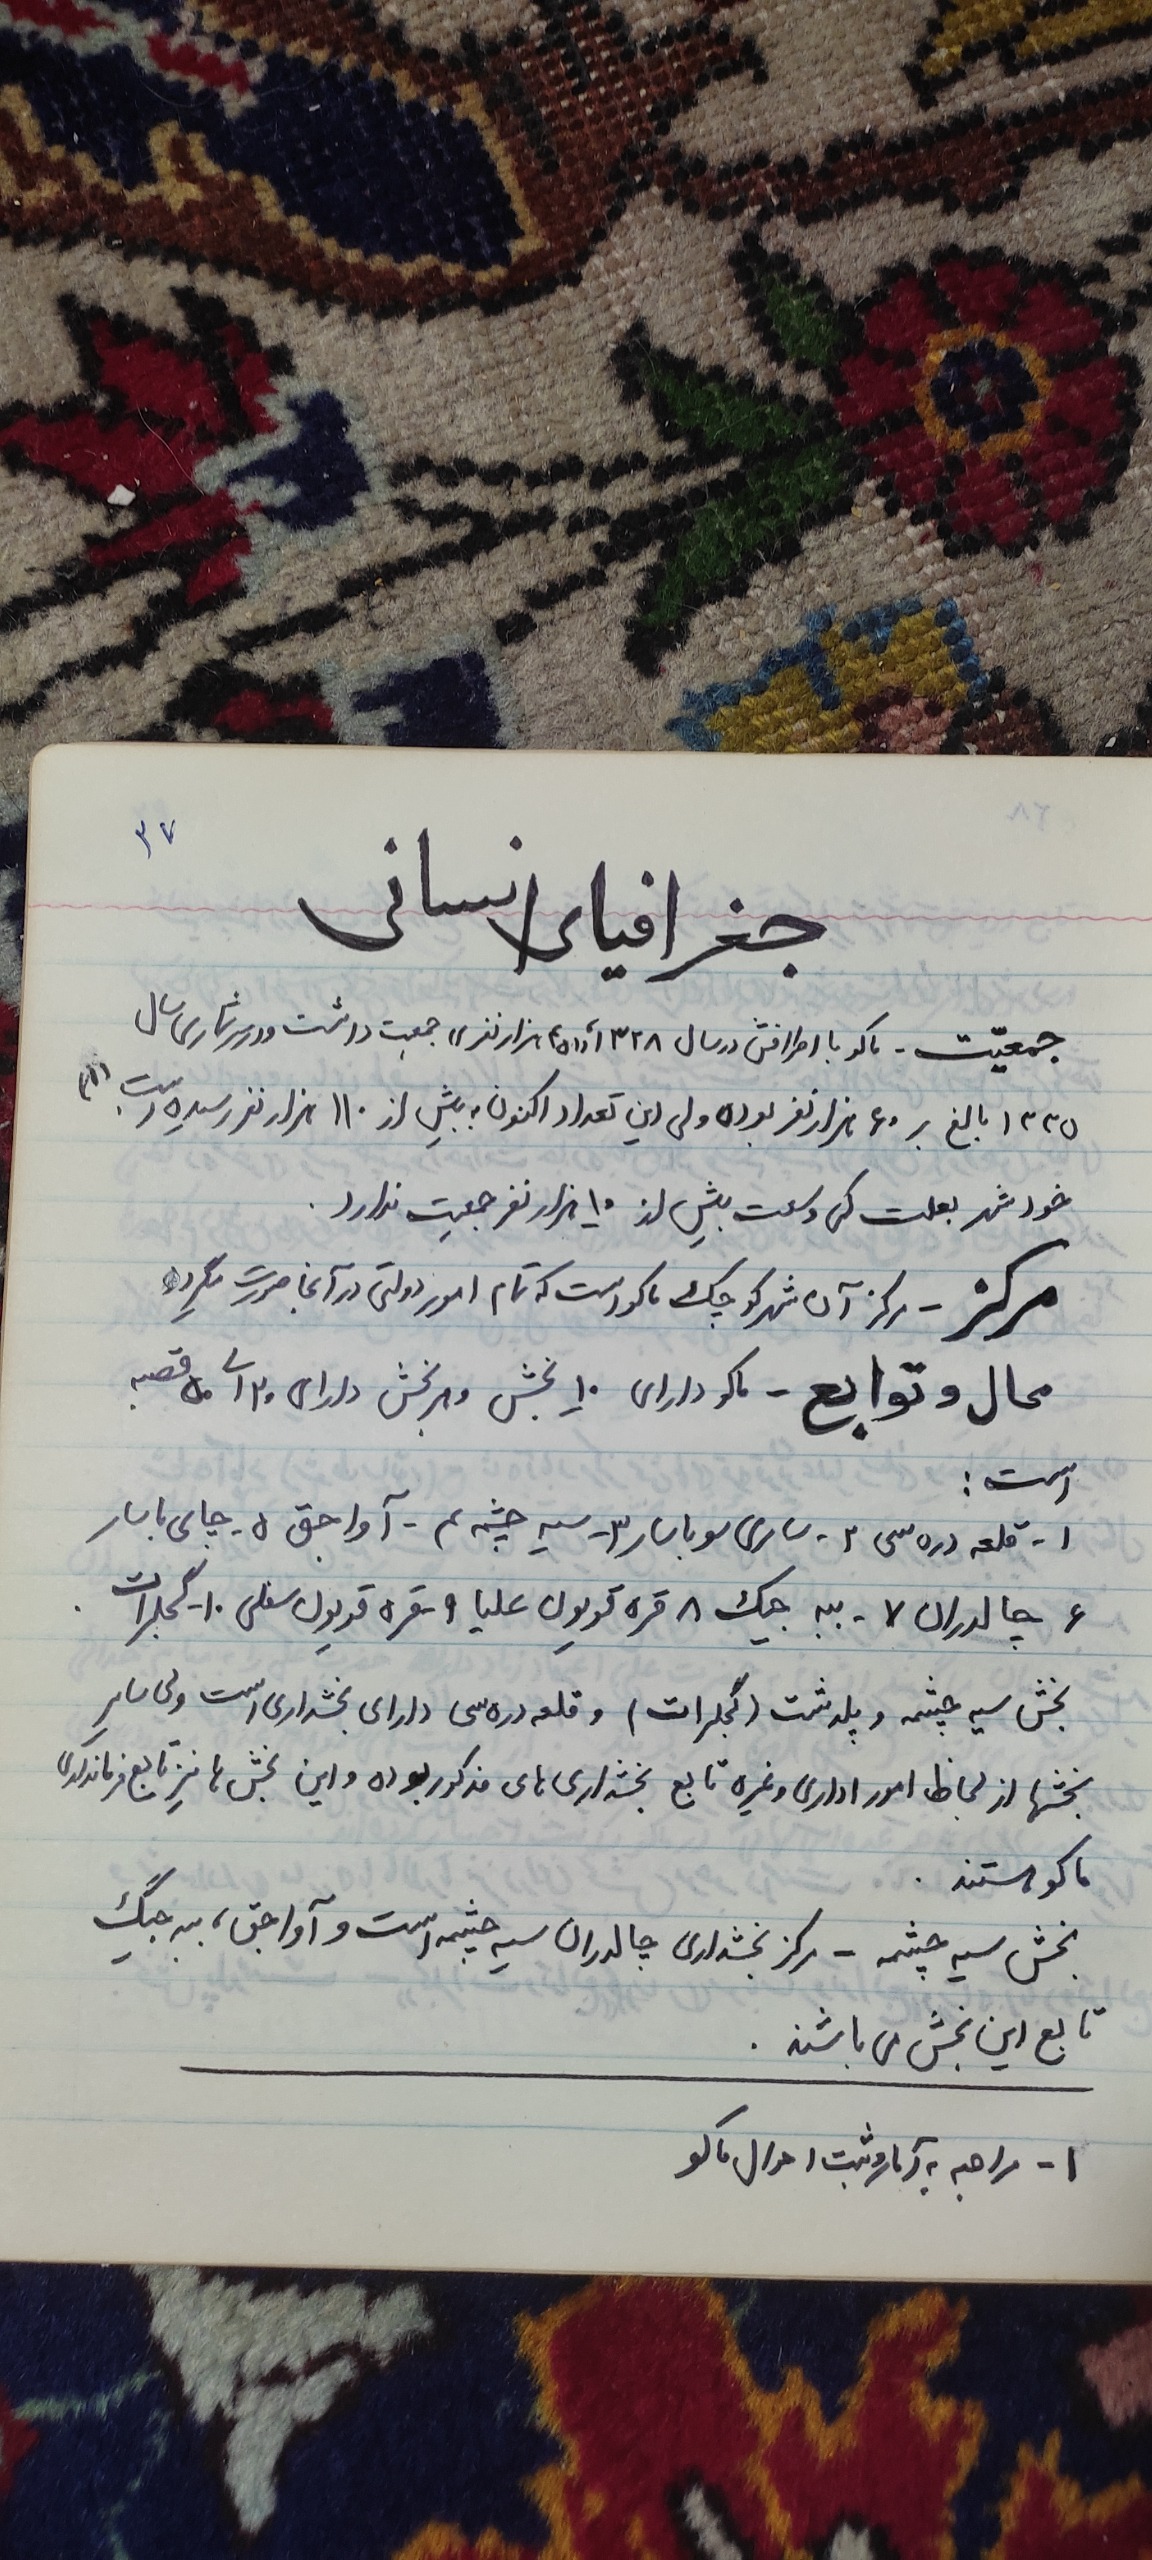 ۳۷
جغرافیای انسانی
جمعیّت - ماکو با اطرافش در سال ۱۳۲۸ هزار نفری جمعیت داشت و در سرشماری سال
۱۳۳۵ بالغ بر ۶۰ هزار نفر بوده ولی این تعداد اکنون به بیش از ۱۱۰ هزار نفر رسیده است. (۱)
خود شهر بعلت کمی وسعت بیش از ۱۰ هزار نفر جمعیت ندارد .
مرکز - مرکز آن شهر کوچک ماکو است که تمام امور دولتی در آنجا صورت میگیرد
محال و توابع - ماکو دارای ۱۰ بخش و هر بخش دارای ۳۰ الی ۵۰ قصبه
است :
۱- قلعه دره سی ۲- ساری سو باسار ۳- سیه چشمه ۴ - آواجق ۵- چای باسار
۶ چالدران ۷ - ببه جیک ۸ قره قویون علیا ۹- قره قویون سفلی ۱۰- گجلرات .
بخش سیه چشمه و پلدشت (گجلرات) و قلعه دره سی دارای بخشداری است ولی سایر
بخشها از لحاظ امور اداری و غیره تابع بخشداری های مذکور بوده و این بخش ها نیز تابع فرمانداری
ماکو هستند .
بخش سیه چشمه - مرکز بخشداری چالدران سیه چشمه است و آواجق ، ببه جیک
تابع این بخش می باشند .
۱ - مراجعه به آمار و ثبت احوال ماکو